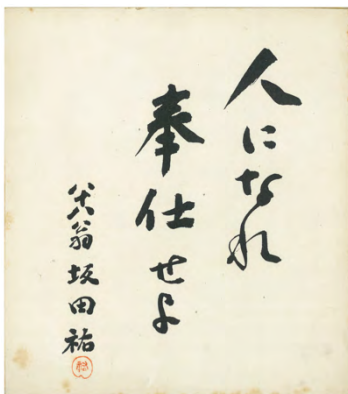 人になれ
奉仕せよ
八十八翁 坂田祐